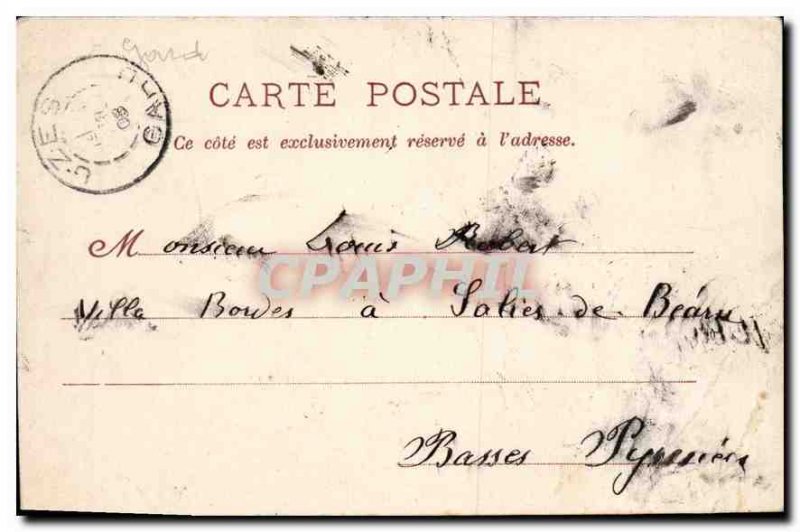 Gard
CARTE POSTALE
Ce côté est exclusivement réservé à l'adresse.
UZES
GARD
Monsieur Louis Robert
CPAPHIL
Villa Bordes à Salies-de-Béarn
Basses Pyrénées